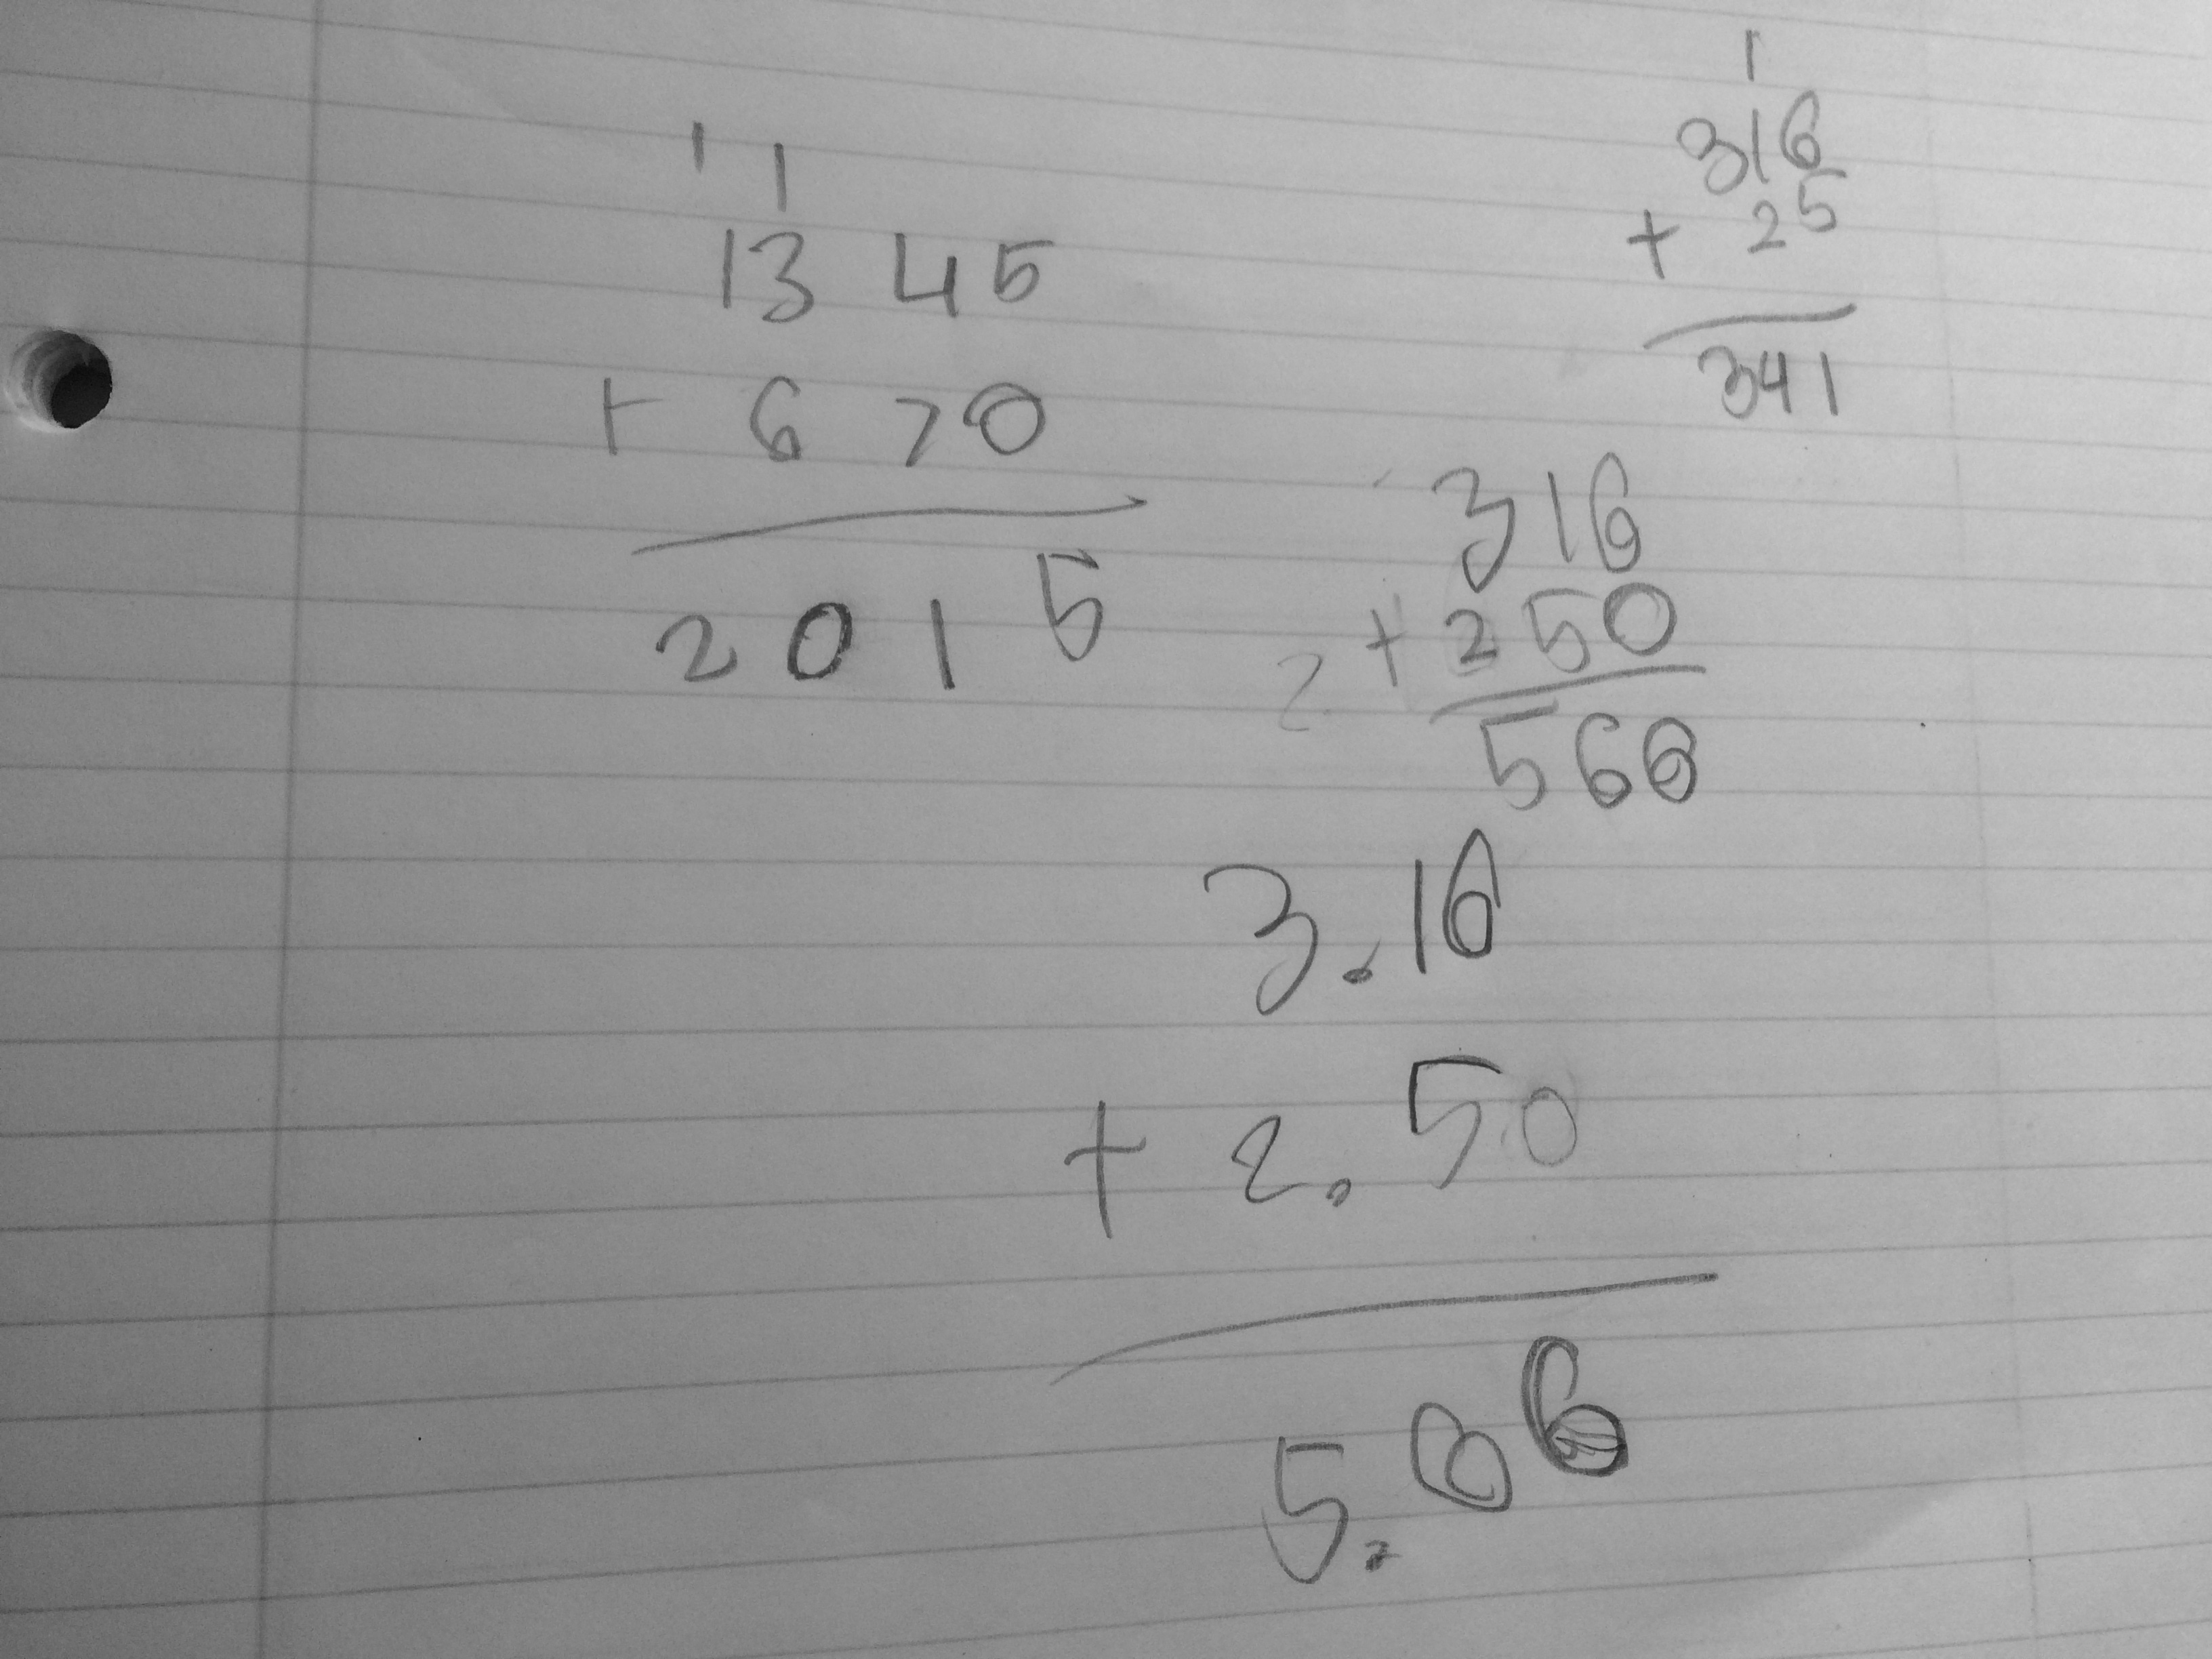 1 1
1345
+ 670
2015
1
316
+ 25
341
316
2 + 250
566
3.16
+ 2.50
5.66